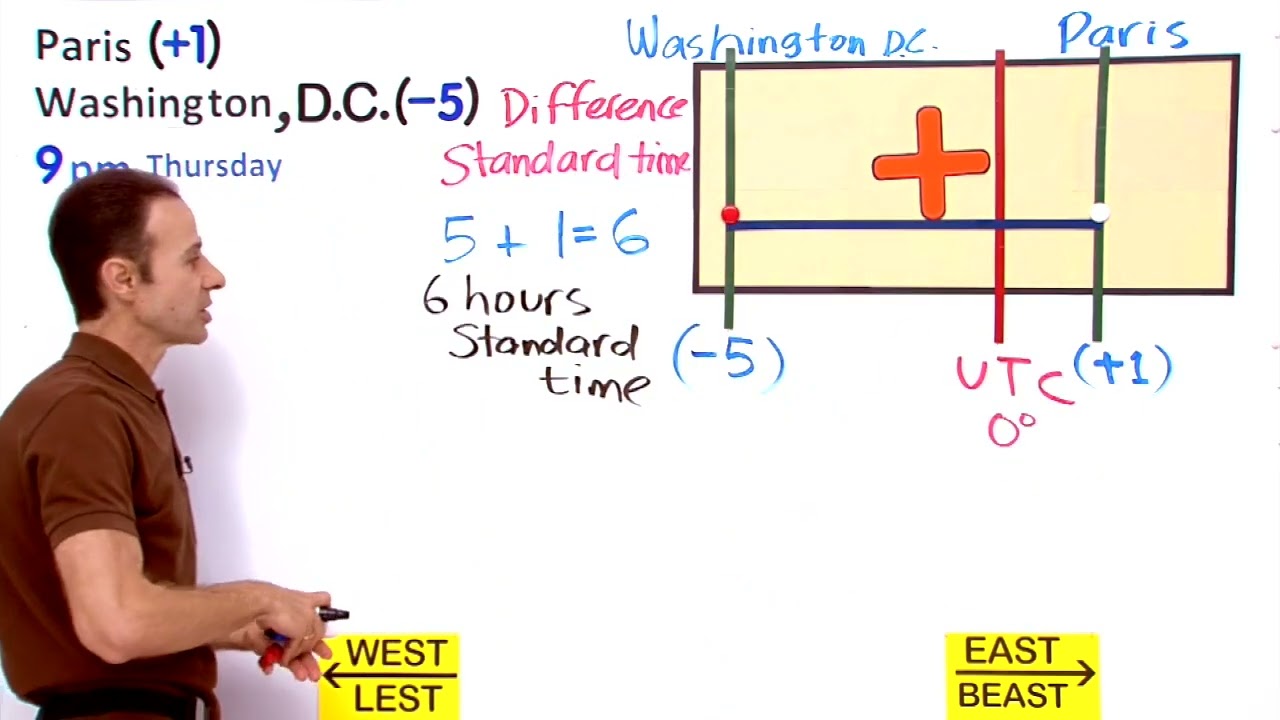 Paris (+1)
Washington, D.C. (-5)
9pm Thursday
Difference
Standard time
5 + 1 = 6
6 hours
Standard
time
Washington D.C.
Paris
+
(-5)
UTC
0°
(+1)
WEST
LEST
EAST
BEAST